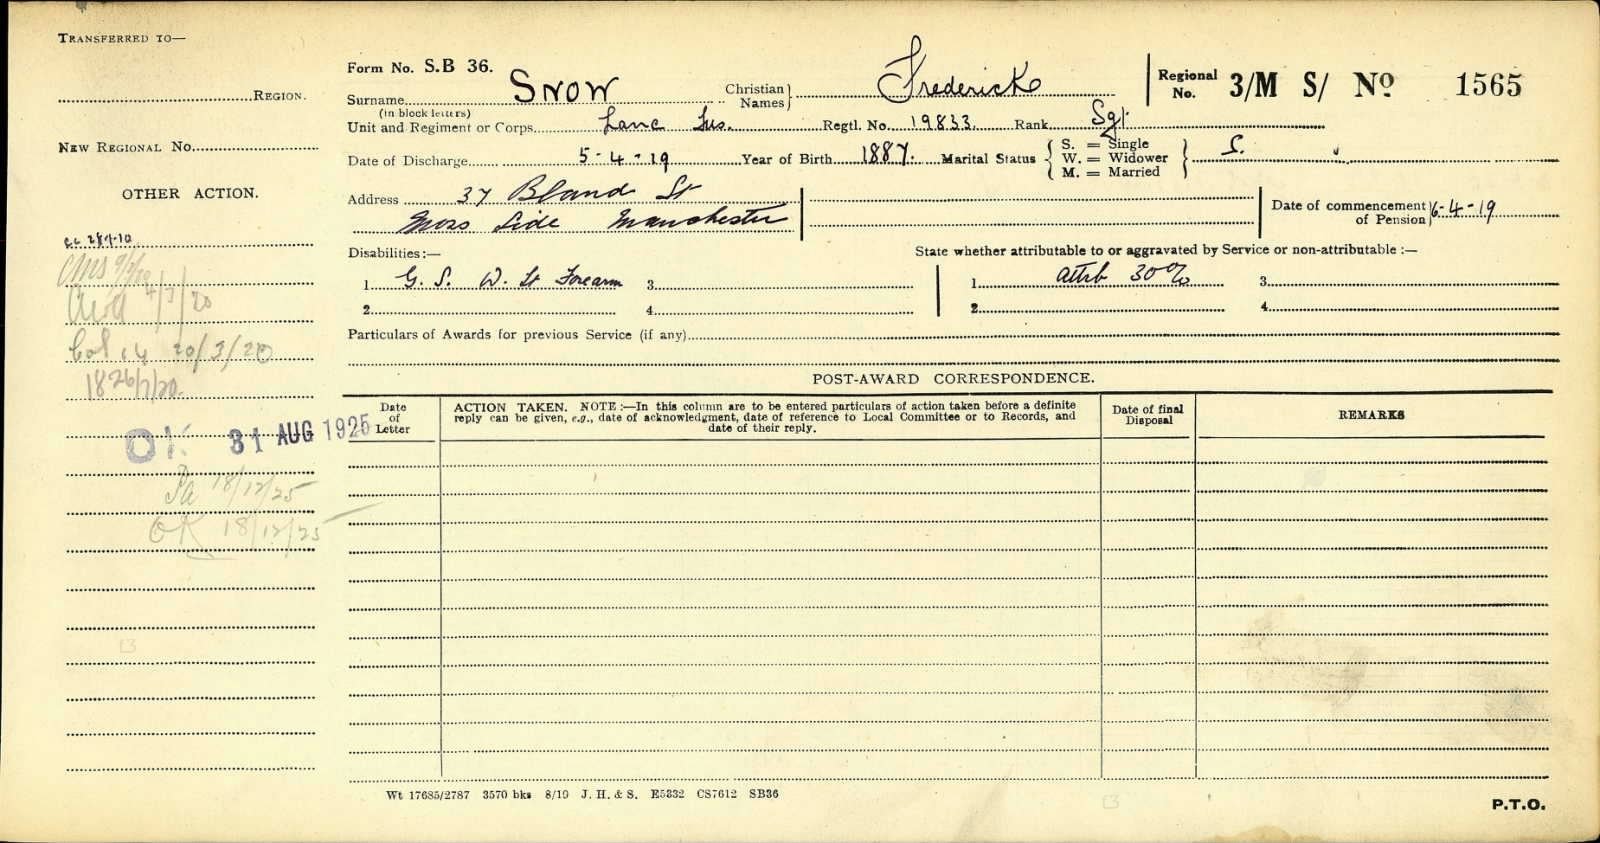 TRANSFERRED TO—
REGION.
NEW REGIONAL No.
OTHER ACTION.
4/3/20
20/3/20
OK 31 AUG 1925
Pa 18/12/25
OK 18/12/25
Form No. S.B 36.
Surname SNOW Christian Names Frederick
(in block letters)
Regional No. 3/M S/ No 1565
Unit and Regiment or Corps Lanc Fus. Regtl. No. 19833 Rank Sgt.
Date of Discharge 5-4-19 Year of Birth 1887. Marital Status { S. = Single W. = Widower M. = Married } S.
Address 37 Bland St
Moss Side Manchester
Date of commencement of Pension 6-4-19
Disabilities:— State whether attributable to or aggravated by Service or non-attributable:—
1 G. S. W. Lt Forearm 3 1 attrib 30% 3
2 4 2 4
Particulars of Awards for previous Service (if any)
POST-AWARD CORRESPONDENCE.
Date of Letter
ACTION TAKEN. NOTE:—In this column are to be entered particulars of action taken before a definite
reply can be given, e.g., date of acknowledgment, date of reference to Local Committee or to Records, and
date of their reply.
Date of final Disposal
REMARKS
Wt 17685/2787 3570 bks 8/19 J. H. & S. E5332 CS7612 SB36
P.T.O.